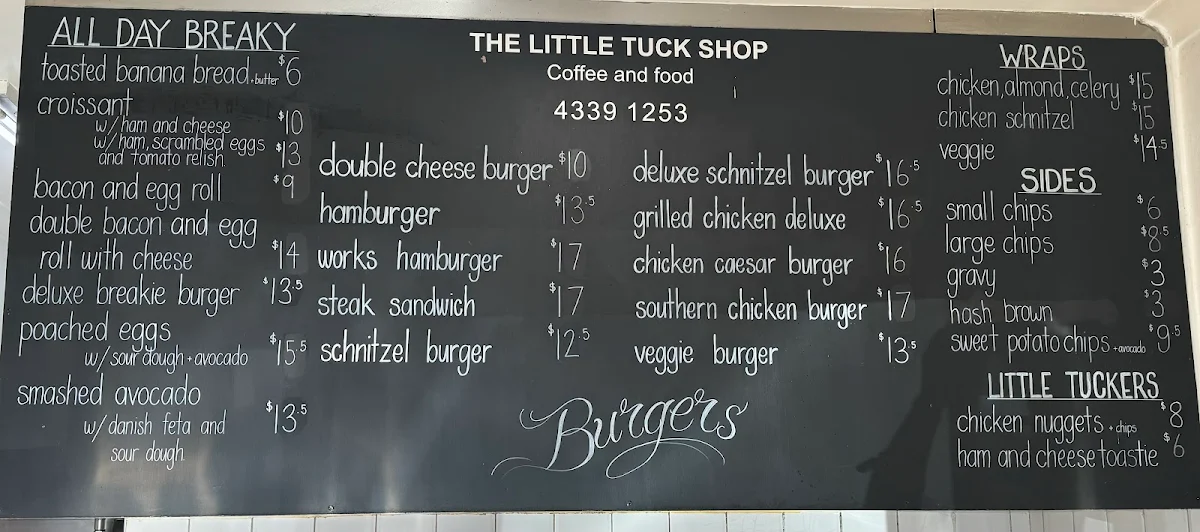 ALL DAY BREAKY
toasted banana bread + butter $6
croissant
w/ ham and cheese $10
w/ ham, scrambled eggs
and tomato relish $13
bacon and egg roll $9
double bacon and egg
roll with cheese $14
deluxe breakie burger $13.5
poached eggs
w/ sour dough + avocado $15.5
smashed avocado
w/ danish feta and $13.5
sour dough
THE LITTLE TUCK SHOP
Coffee and food
4339 1253
double cheese burger $10
hamburger $13.5
works hamburger $17
steak sandwich $17
schnitzel burger $12.5
deluxe schnitzel burger $16.5
grilled chicken deluxe $16.5
chicken caesar burger $16
southern chicken burger $17
veggie burger $13.5
Burgers
WRAPS
chicken, almond, celery $15
chicken schnitzel $15
veggie $14.5
SIDES
small chips $6
large chips $8.5
gravy $3
hash brown $3
sweet potato chips + avocado $9.5
LITTLE TUCKERS
chicken nuggets + chips $8
ham and cheese toastie $6